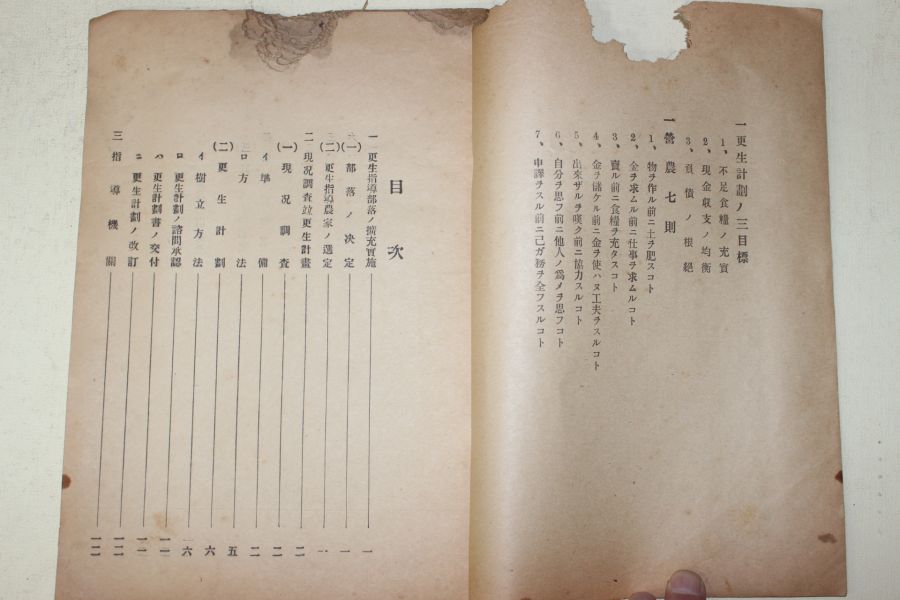 一 更生計劃ノ三目標
1、不足食糧ノ充實
2、現金収支ノ均衡
3、負債ノ根絕
一 營農七則
1、物ヲ作ル前ニ土ヲ肥スコト
2、金ヲ求ムル前ニ仕事ヲ求ムルコト
3、賣ル前ニ食糧ヲ充タスコト
4、金ヲ儲ケル前ニ金ヲ使ハヌ工夫ヲスルコト
5、出來ザルヲ嘆ク前ニ協力スルコト
6、自分ヲ思フ前ニ他人ノ爲メヲ思フコト
7、申譯ヲスル前ニ己ガ務ヲ全フスルコト
目次
一 更生指導部落ノ擴充實施 一
(一) 部落ノ決定 一
(二) 更生指導農家ノ選定
二 現況調査竝更生計畫 二
(一) 現況調査 二
イ 準備 二
ロ 方法 五
(二) 更生計劃 六
イ 樹立方法 六
ロ 更生計劃ノ諮問承認
ハ 更生計劃書ノ交付
ニ 更生計劃ノ改訂
三 指導機關